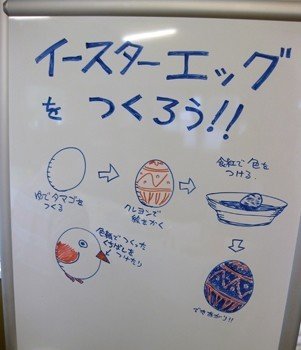 イースターエッグ
を つくろう!!
ゆでタマゴを
つくる
クレヨンで
絵をかく
食紅で色を
つける
色紙でつくった
くちばしを
つけたり
でき上がり!!